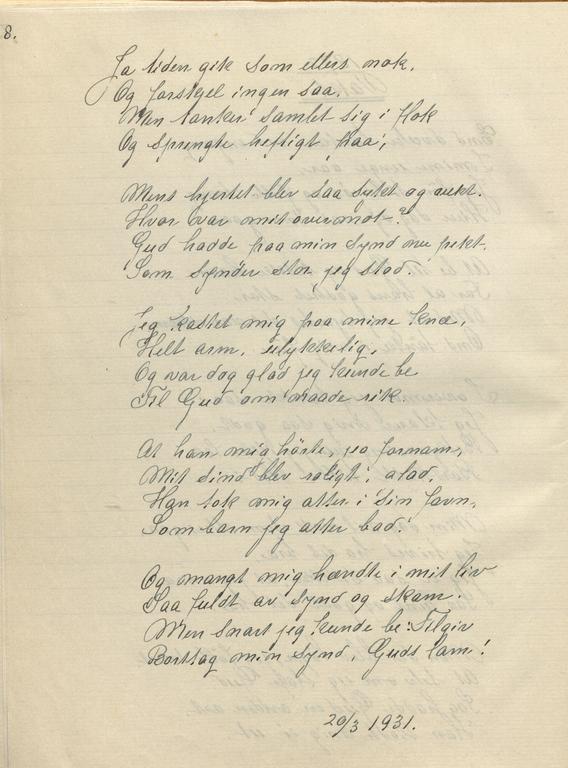 8.
Ja tiden gik som ellers nok,
Og forskjel ingen saa.
Men tanker samlet sig i flok
Og sprengte heftigt paa;
Mens hjertet blev saa sykt og
Hvor var mit overmot?
Gud hadde paa min synd nu pekt.
Som synder stor jeg stod.
Jeg kastet mig paa mine knæ,
Helt arm, ulykkelig,
Og var dog glad jeg kunde be
Til Gud om naade rik.
At han mig hörte, jeg fornam,
Mit sind blev roligt, glad,
Han tok mig atter i sin favn,
Som barn jeg atter bad.
Og mangt mig hændte i mit liv
Saa fuldt av synd og skam.
Men snart jeg kunde be: Tilgiv
Borttag min synd, Guds lam!
20/3 1931.